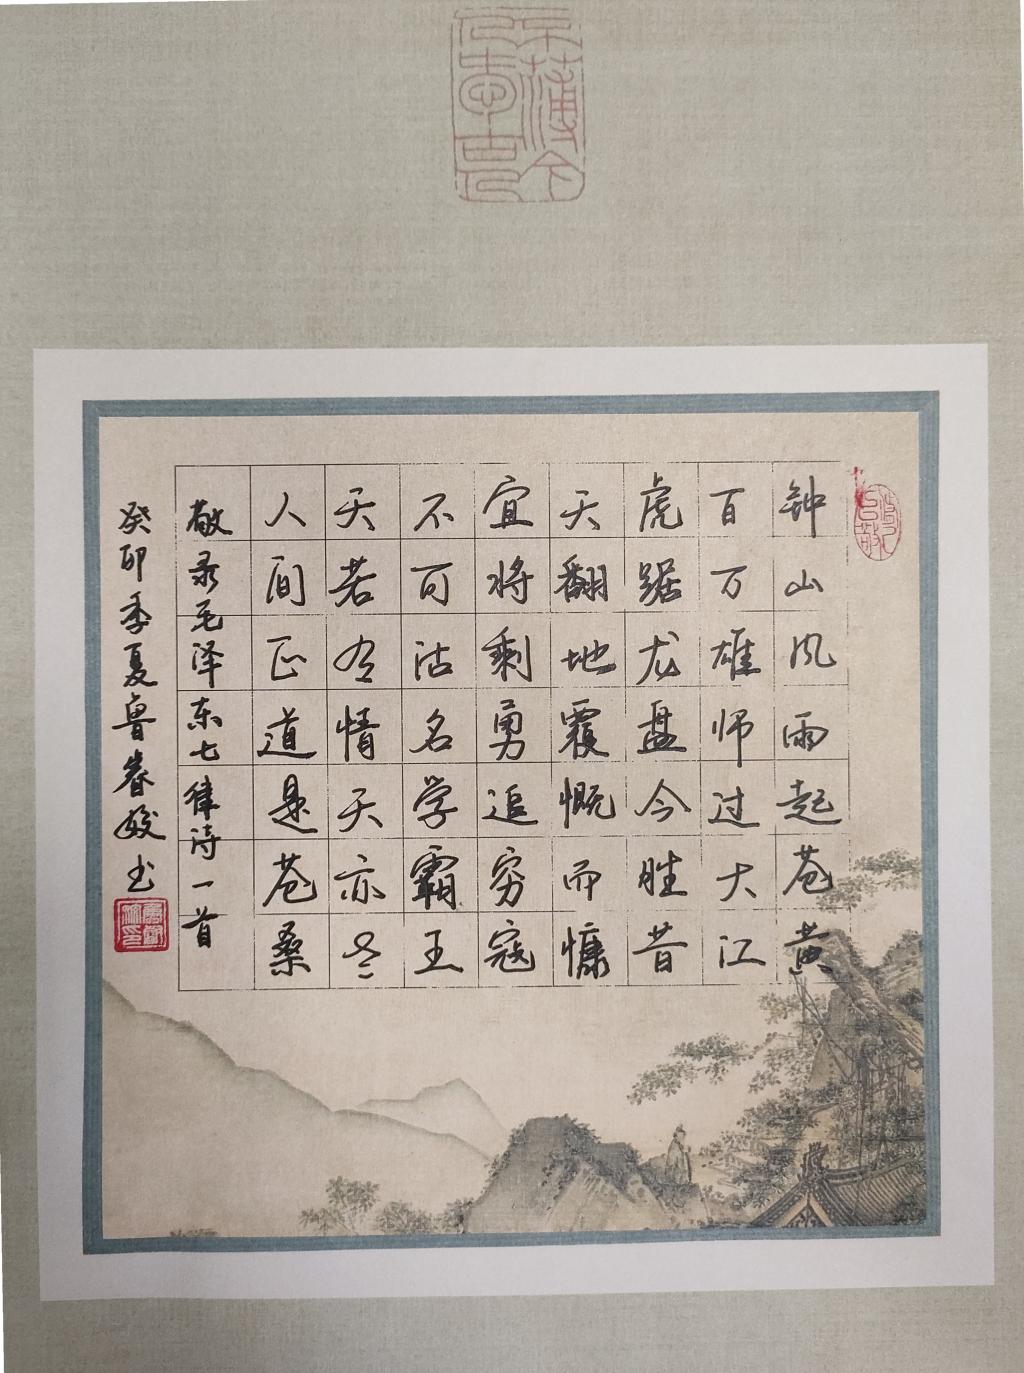 钟山风雨起苍黄
百万雄师过大江
虎踞龙盘今胜昔
天翻地覆慨而慷
宜将剩勇追穷寇
不可沽名学霸王
天若有情天亦老
人间正道是苍桑
敬录毛泽东七律诗一首
癸卯季夏鲁春姣书